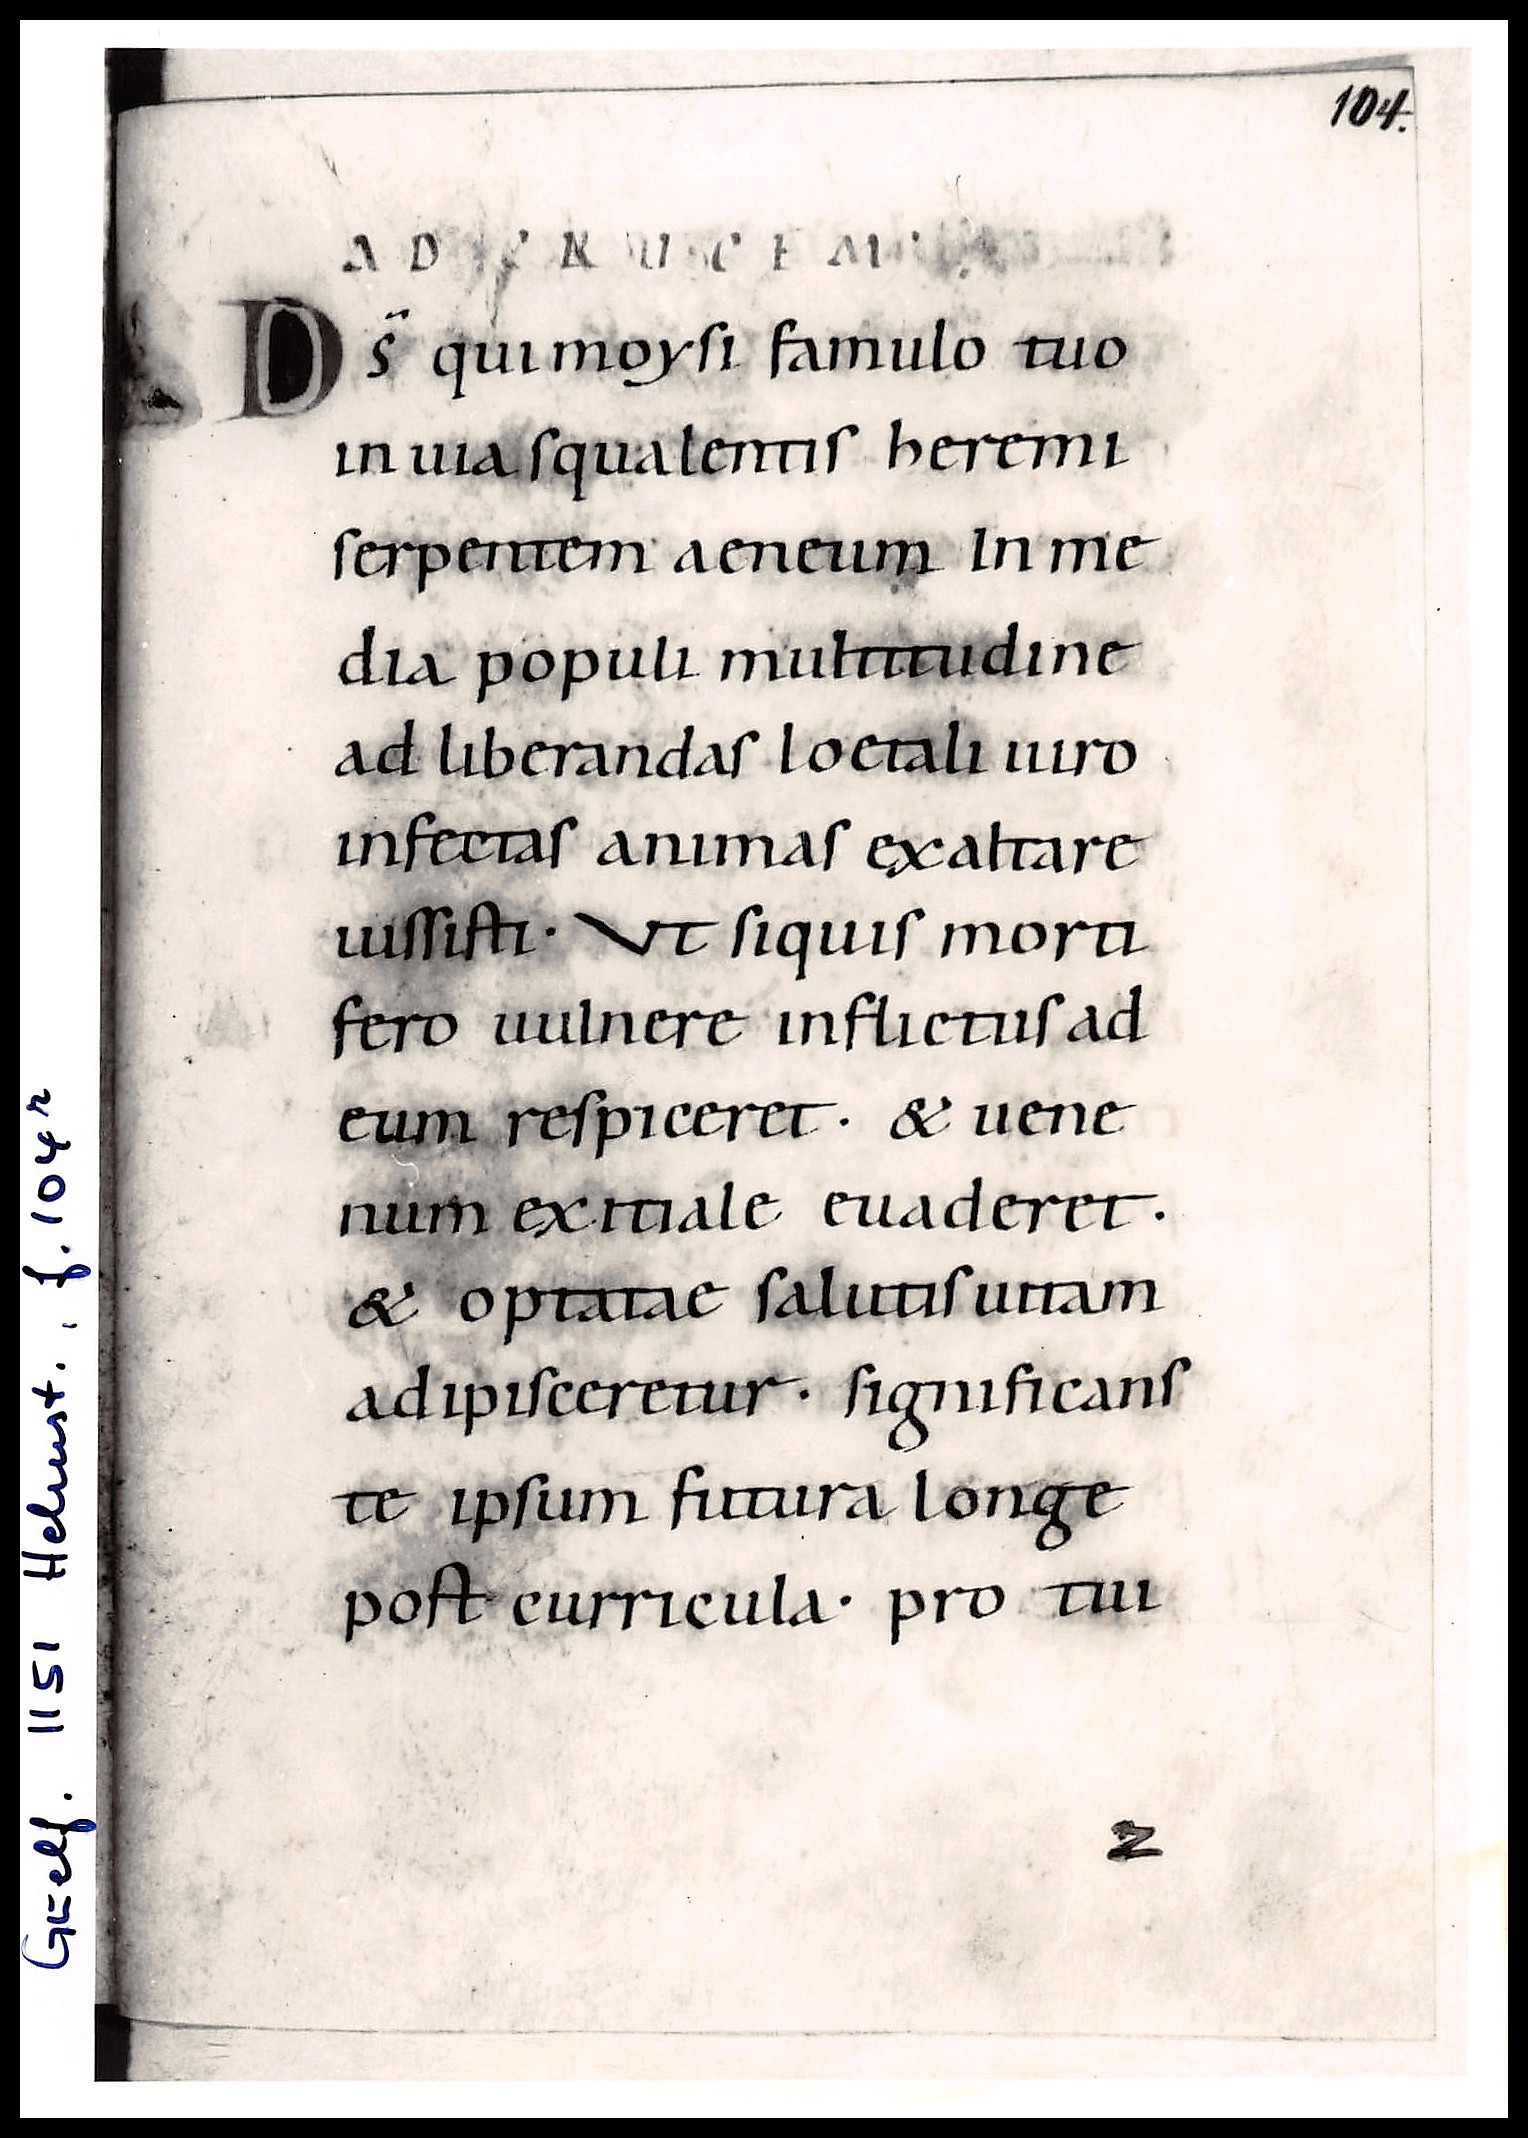 104.
AD CRUCEM
Ds̄ qui moysi famulo tuo
in uia squalentis heremi
serpentem aeneum In me
dia populi multitudine
ad liberandas loetali uiro
infectas animas exaltare
iussisti· Vt siquis morti
fero uulnere inflictus ad
eum respiceret· & uene
num exitiale euaderet·
& optatae salutis uitam
adipisceretur· significans
te ipsum futura longe
post curricula· pro tui
2
Guelf. 1151 Helmst., f. 104r